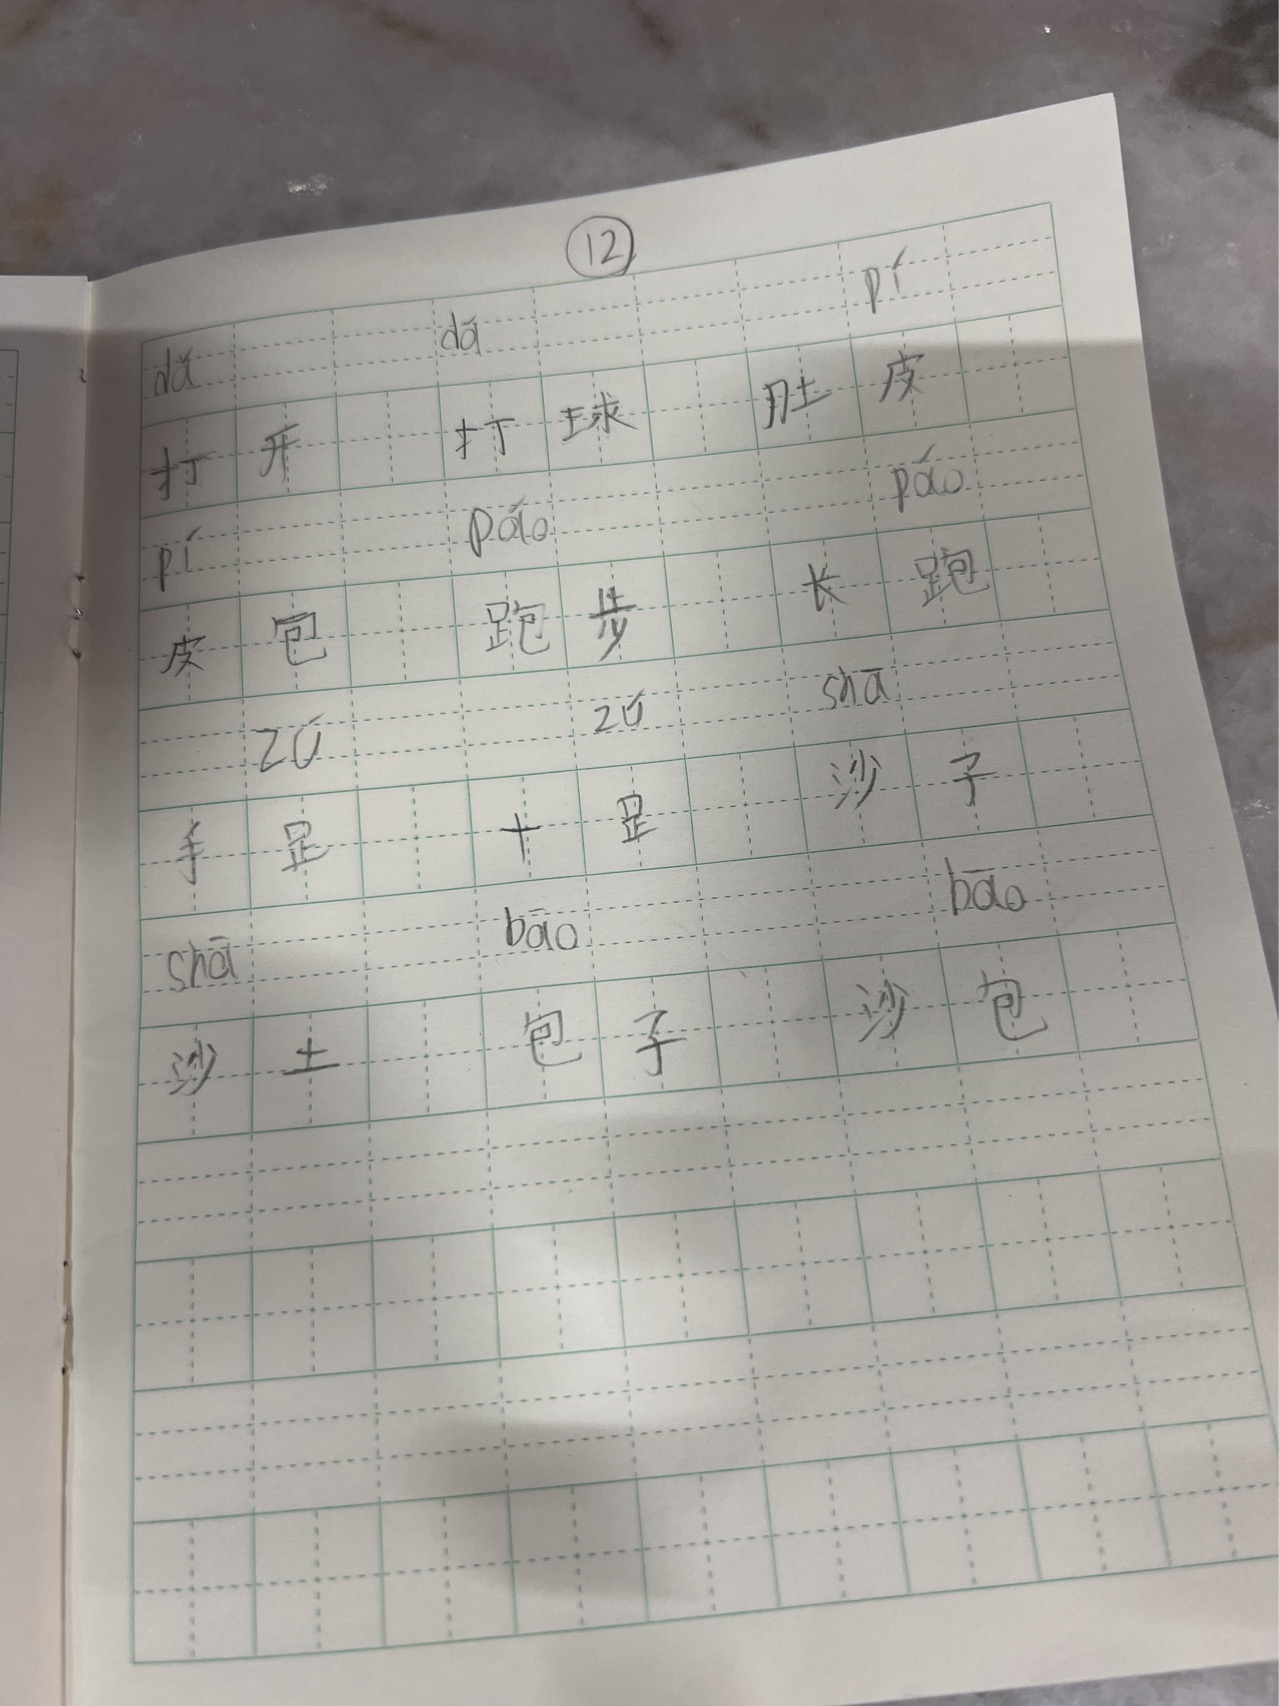 12
dǎ dǎ pí
打开 打球 肚皮
pí páo páo
皮包 跑步 长跑
zú zú shā
手足 十足 沙子
shā bāo bāo
沙土 包子 沙包